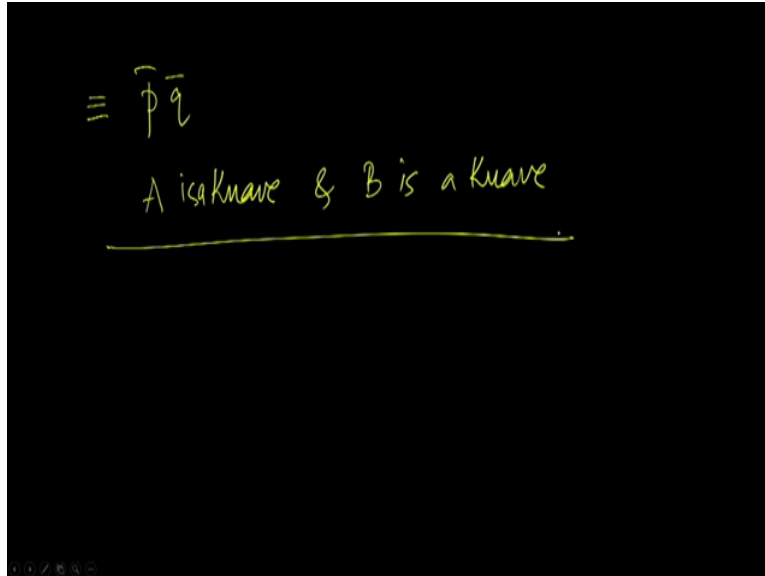 ≡ p̄ q̄
A is a Knave & B is a Knave